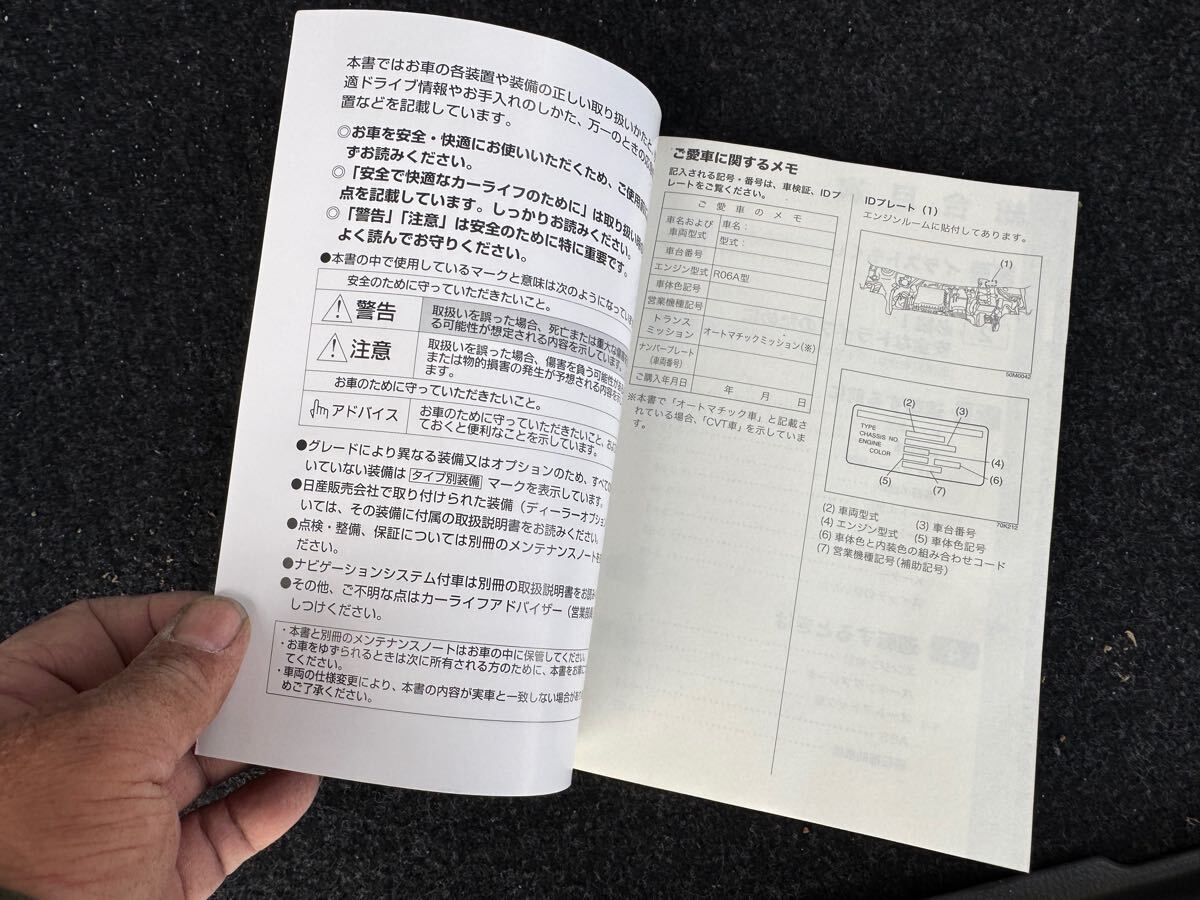 本書ではお車の各装置や装備の正しい取り扱いかたと、
適ドライブ情報やお手入れのしかた、万一のときの
置などを記載しています。
◎お車を安全・快適にお使いいただくため、ご使用前に
ずお読みください。
◎「安全で快適なカーライフのために」は取り扱い
点を記載しています。しっかりお読みください。
◎「警告」「注意」は安全のために特に重要です。
よく読んでお守りください。
●本書の中で使用しているマークと意味は次のようになってい
安全のために守っていただきたいこと。
警告
取扱いを誤った場合、死亡または重大な
る可能性が想定される内容を示しています。
注意
取扱いを誤った場合、傷害を負う可能性が
または物的損害の発生が予想される内容を示
ます。
お車のために守っていただきたいこと。
アドバイス
お車のために守っていただきたいこと、
ておくと便利なことを示しています。
●グレードにより異なる装備又はオプションのため、すべて
いていない装備は タイプ別装備 マークを表示しています。
●日産販売会社で取り付けられた装備（ディーラーオプショ
いては、その装備に付属の取扱説明書をお読みください。
●点検・整備、保証については別冊のメンテナンスノートを
ださい。
●ナビゲーションシステム付車は別冊の取扱説明書をお読み
●その他、ご不明な点はカーライフアドバイザー（営業
しつけください。
・本書と別冊のメンテナンスノートはお車の中に保管してください。
・お車をゆずられるときは次に所有される方のために、本書をお車に
てください。
・車両の仕様変更により、本書の内容が実車と一致しない場合があ
めご了承ください。
ご愛車に関するメモ
記入される記号・番号は、車検証、IDプ
レートをご覧ください。
ご愛車のメモ
車名および
車両型式
車名：
型式：
車台番号
エンジン型式 R06A型
車体色記号
営業機種記号
トランス
ミッション
オートマチックミッション(※)
ナンバープレート
(車両番号)
ご購入年月日 年 月 日
※本書で「オートマチック車」と記載さ
れている場合、「CVT車」を示していま
す。
IDプレート（1）
エンジンルームに貼付してあります。
(1)
50M0042
(2)
(3)
TYPE
CHASSIS NO.
ENGINE
COLOR
(4)
(6)
(5)
(7)
70K212
(2) 車両型式 (3) 車台番号
(4) エンジン型式 (5) 車体色記号
(6) 車体色と内装色の組み合わせコード
(7) 営業機種記号(補助記号)